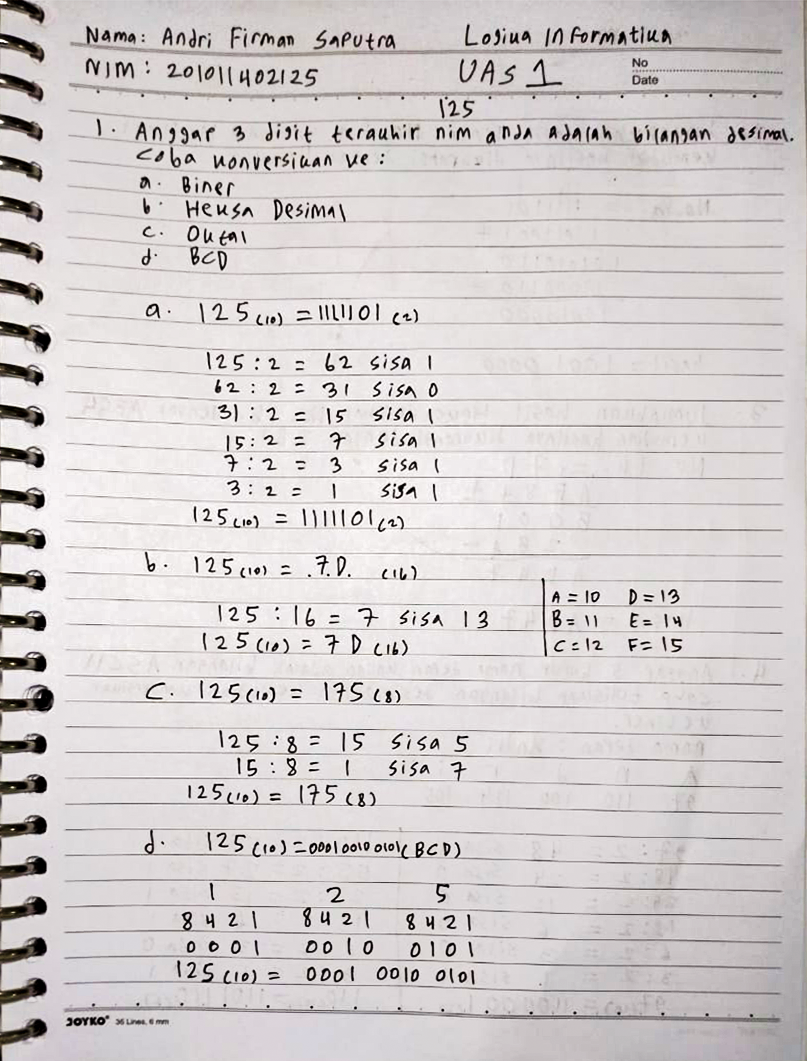 Nama: Andri Firman Saputra Logika Informatika
NIM: 201011402125 UAS 1 No
Date
125
1. Anggap 3 digit terakhir nim anda adalah bilangan desimal.
Coba konversikan ke:
a. Biner
b. Heksa Desimal
c. Oktal
d. BCD
a. 125(10) = 1111101 (2)
125 : 2 = 62 sisa 1
62 : 2 = 31 sisa 0
31 : 2 = 15 sisa 1
15 : 2 = 7 sisa 1
7 : 2 = 3 sisa 1
3 : 2 = 1 sisa 1
125(10) = 1111101(2)
b. 125(10) = .7.D. (16)
A = 10 D = 13
125 : 16 = 7 sisa 13 B = 11 E = 14
125(10) = 7D(16) C = 12 F = 15
C. 125(10) = 175(8)
125 : 8 = 15 sisa 5
15 : 8 = 1 sisa 7
125(10) = 175(8)
d. 125(10) = 000100100101(BCD)
1 2 5
8 4 2 1 8 4 2 1 8 4 2 1
0 0 0 1 0 0 1 0 0 1 0 1
125(10) = 0001 0010 0101
JOYKO® 36 Lines, 6 mm